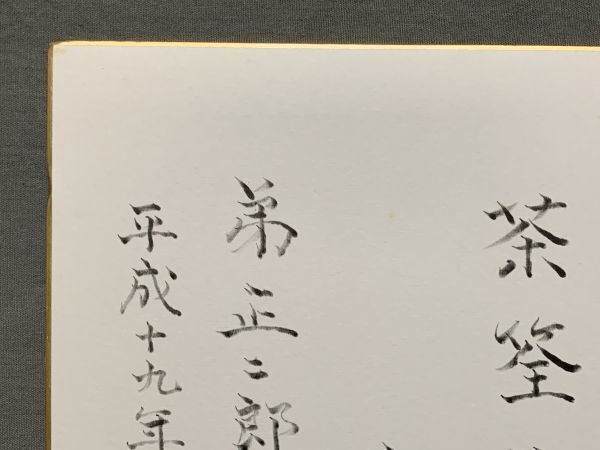 茶筌
弟正二郎
平成十九年